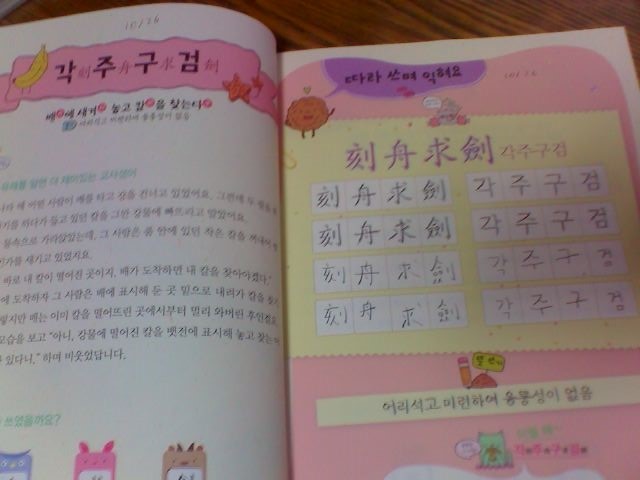 10/26
각刻주舟구求검劍
배에 새겨 놓고 칼을 찾는다
어리석고 미련하여 융통성이 없음
어떤 사람이 배를 타고 강을 건너고 있었어요. 그런데
하다가 들고 있던 칼을 그만 강물에 빠뜨리고 말았어요.
물속으로 가라앉았는데, 그 사람은 품 안에 있던 작은 칼을 꺼내어
새기고 있었지요.
바로 내 칼이 떨어진 곳이지. 배가 도착하면 내 칼을 찾아야겠다."
에 도착하자 그 사람은 배에 표시해 둔 곳 밑으로 내려가 칼을
배는 이미 칼을 떨어뜨린 곳에서부터 멀리 와버린 후인걸요.
모습을 보고 "아니, 강물에 떨어진 칼을 뱃전에 표시해 놓고 찾는
있다니." 하며 비웃었답니다.
쓰였을까요?
따라 쓰며 익혀요
10/26
刻舟求劍 각주구검
刻舟求劍 각주구검
刻舟求劍 각주구검
刻舟求劍 각주구검
刻舟求劍 각주구검
어리석고 미련하여 융통성이 없음